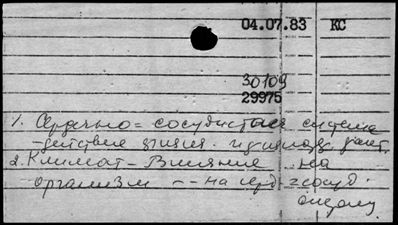 04.07.83 КС
30109
29975
1. Сердечно=сосудистая система
-действие физич. и климат. факт.
2. Климат - Влияние на
организм -- на серд=сосуд.
систему